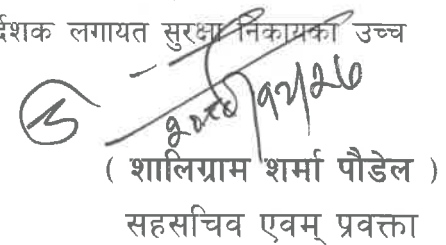 र्देशक लगायत सुरक्षा निकायका उच्च
( शालिग्राम शर्मा पौडेल )
सहसचिव एवम् प्रवक्ता